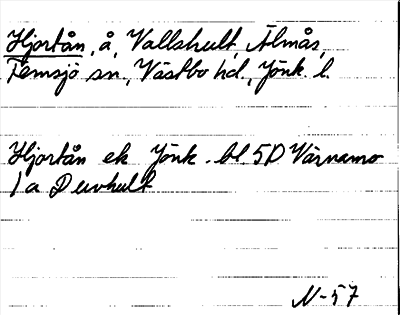 Hjortån, å, Vallshult, Älmås,
Femsjö sn., Västbo hd., Jönk. l.
Hjortån ek Jönk. bl. 5D Värnamo
1a Duvhult
N-57